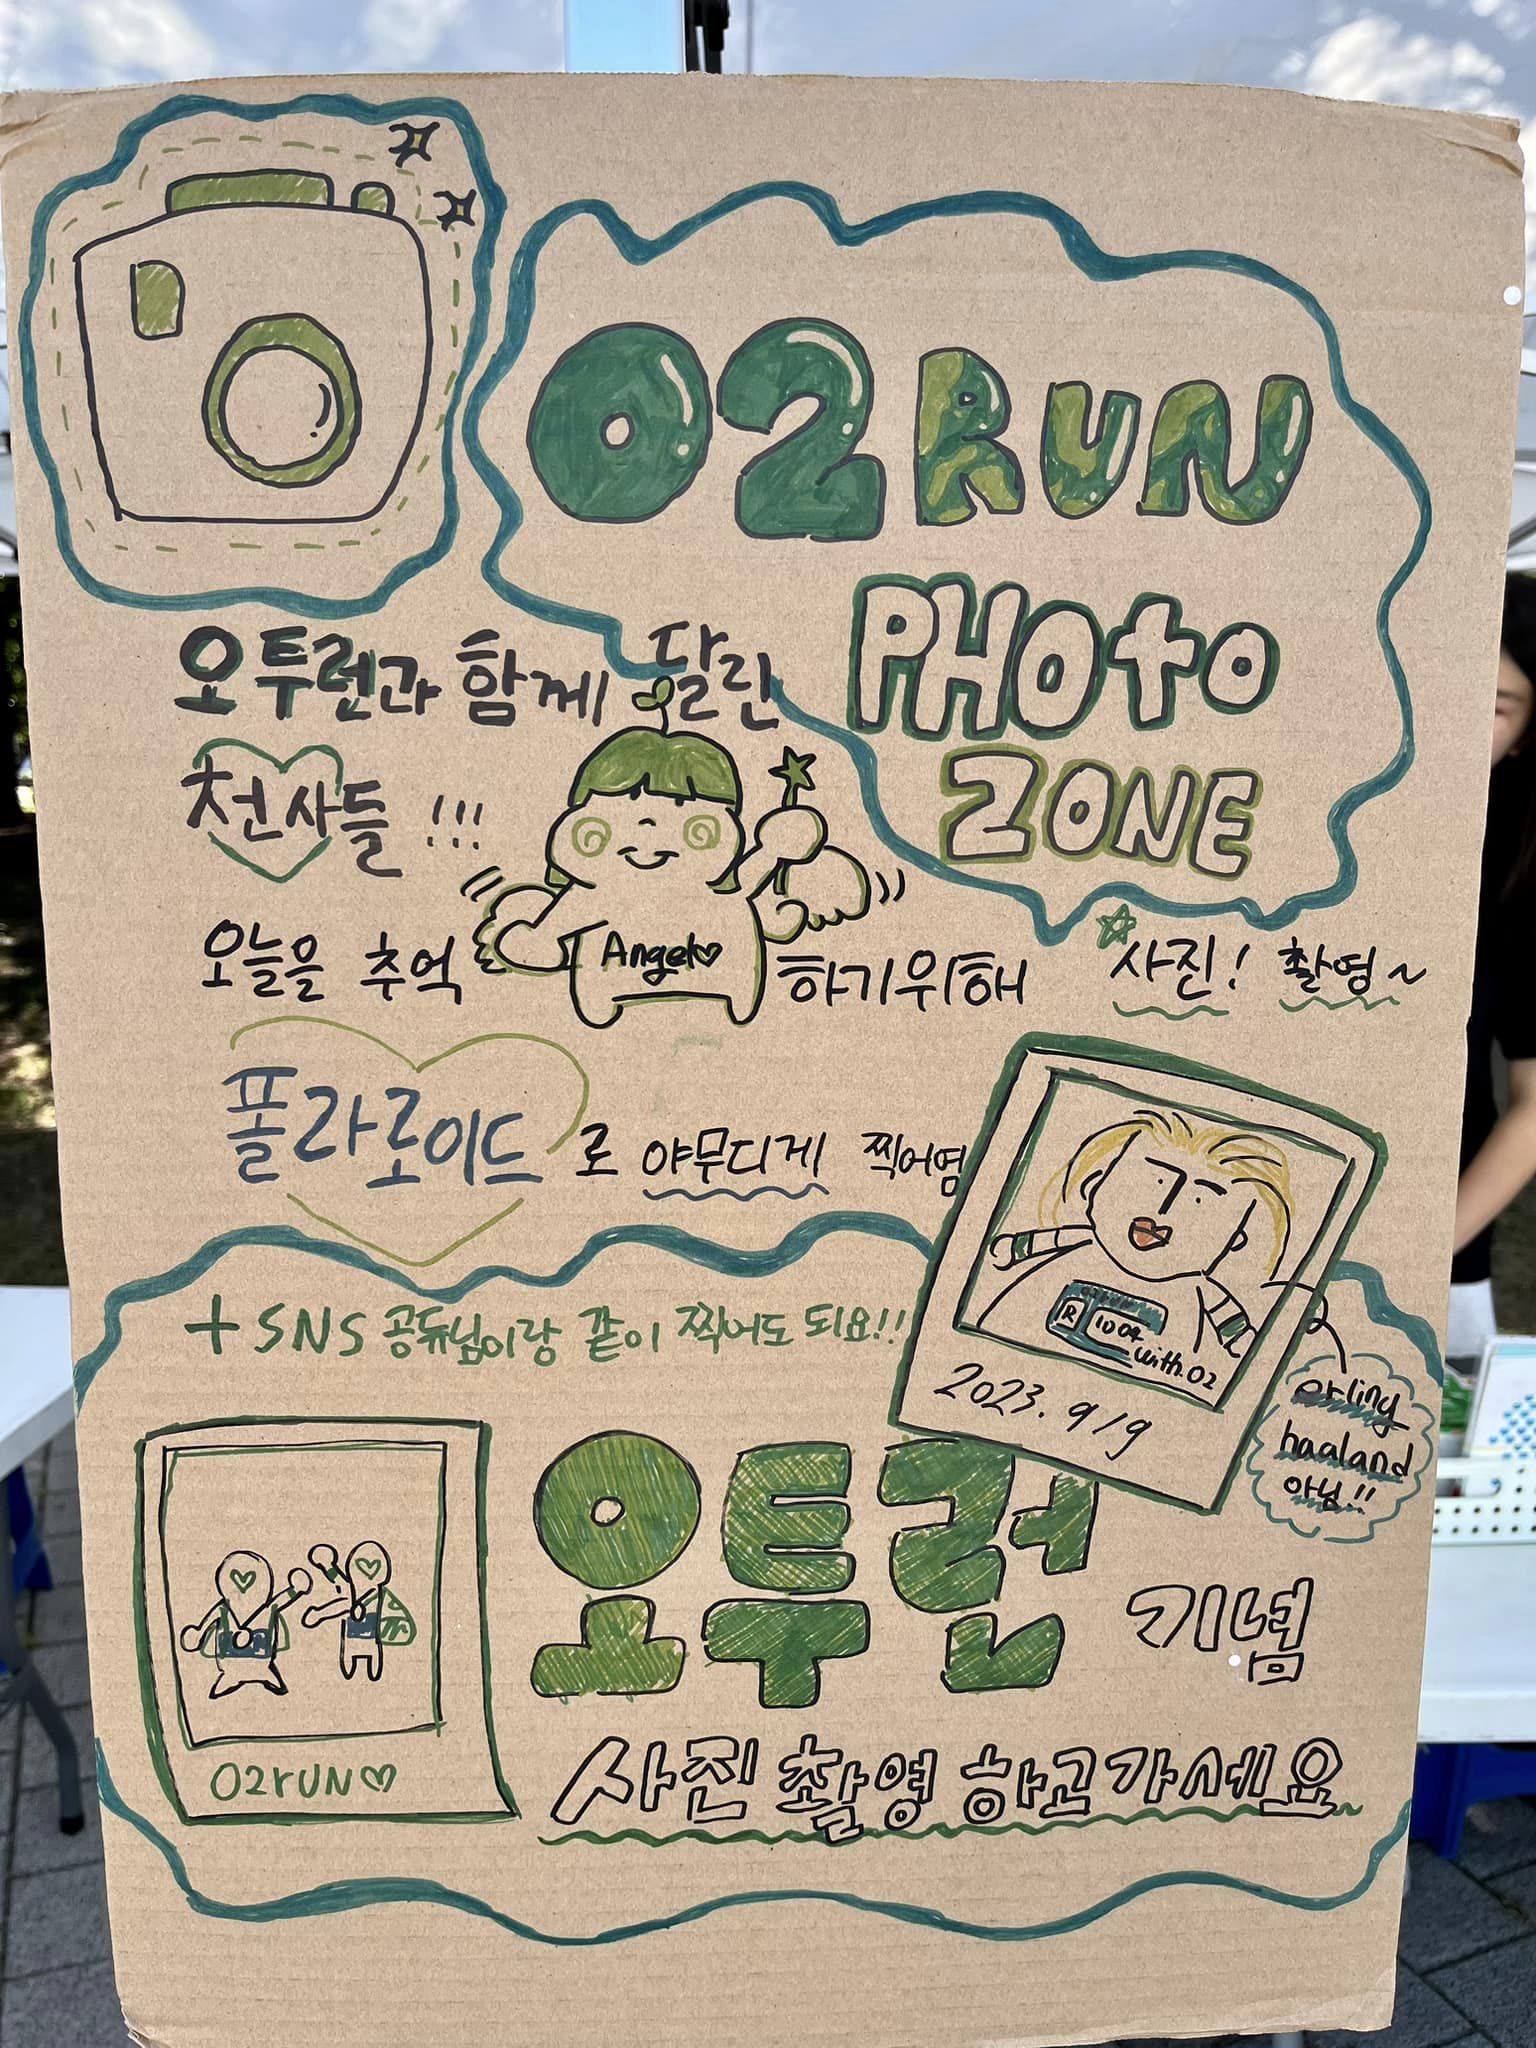 O2 RUN
PHOTO
ZONE
오투런과 함께 달린
천사들 !!!
Angel♡
오늘을 추억 하기위해 사진! 촬영~
폴라로이드 로 야무디게 찍어염
+ SNS 공듀님이랑 같이 찍어도 되요!!
R 1004
with.O2
2023. 9/9
erling
haaland
아님!!
O2rUN♡
오투런 기념
사진 촬영 하고가세요